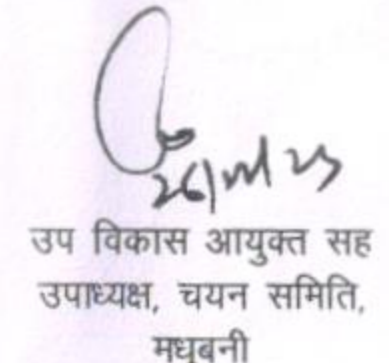 उप विकास आयुक्त सह
उपाध्यक्ष, चयन समिति,
मधुबनी